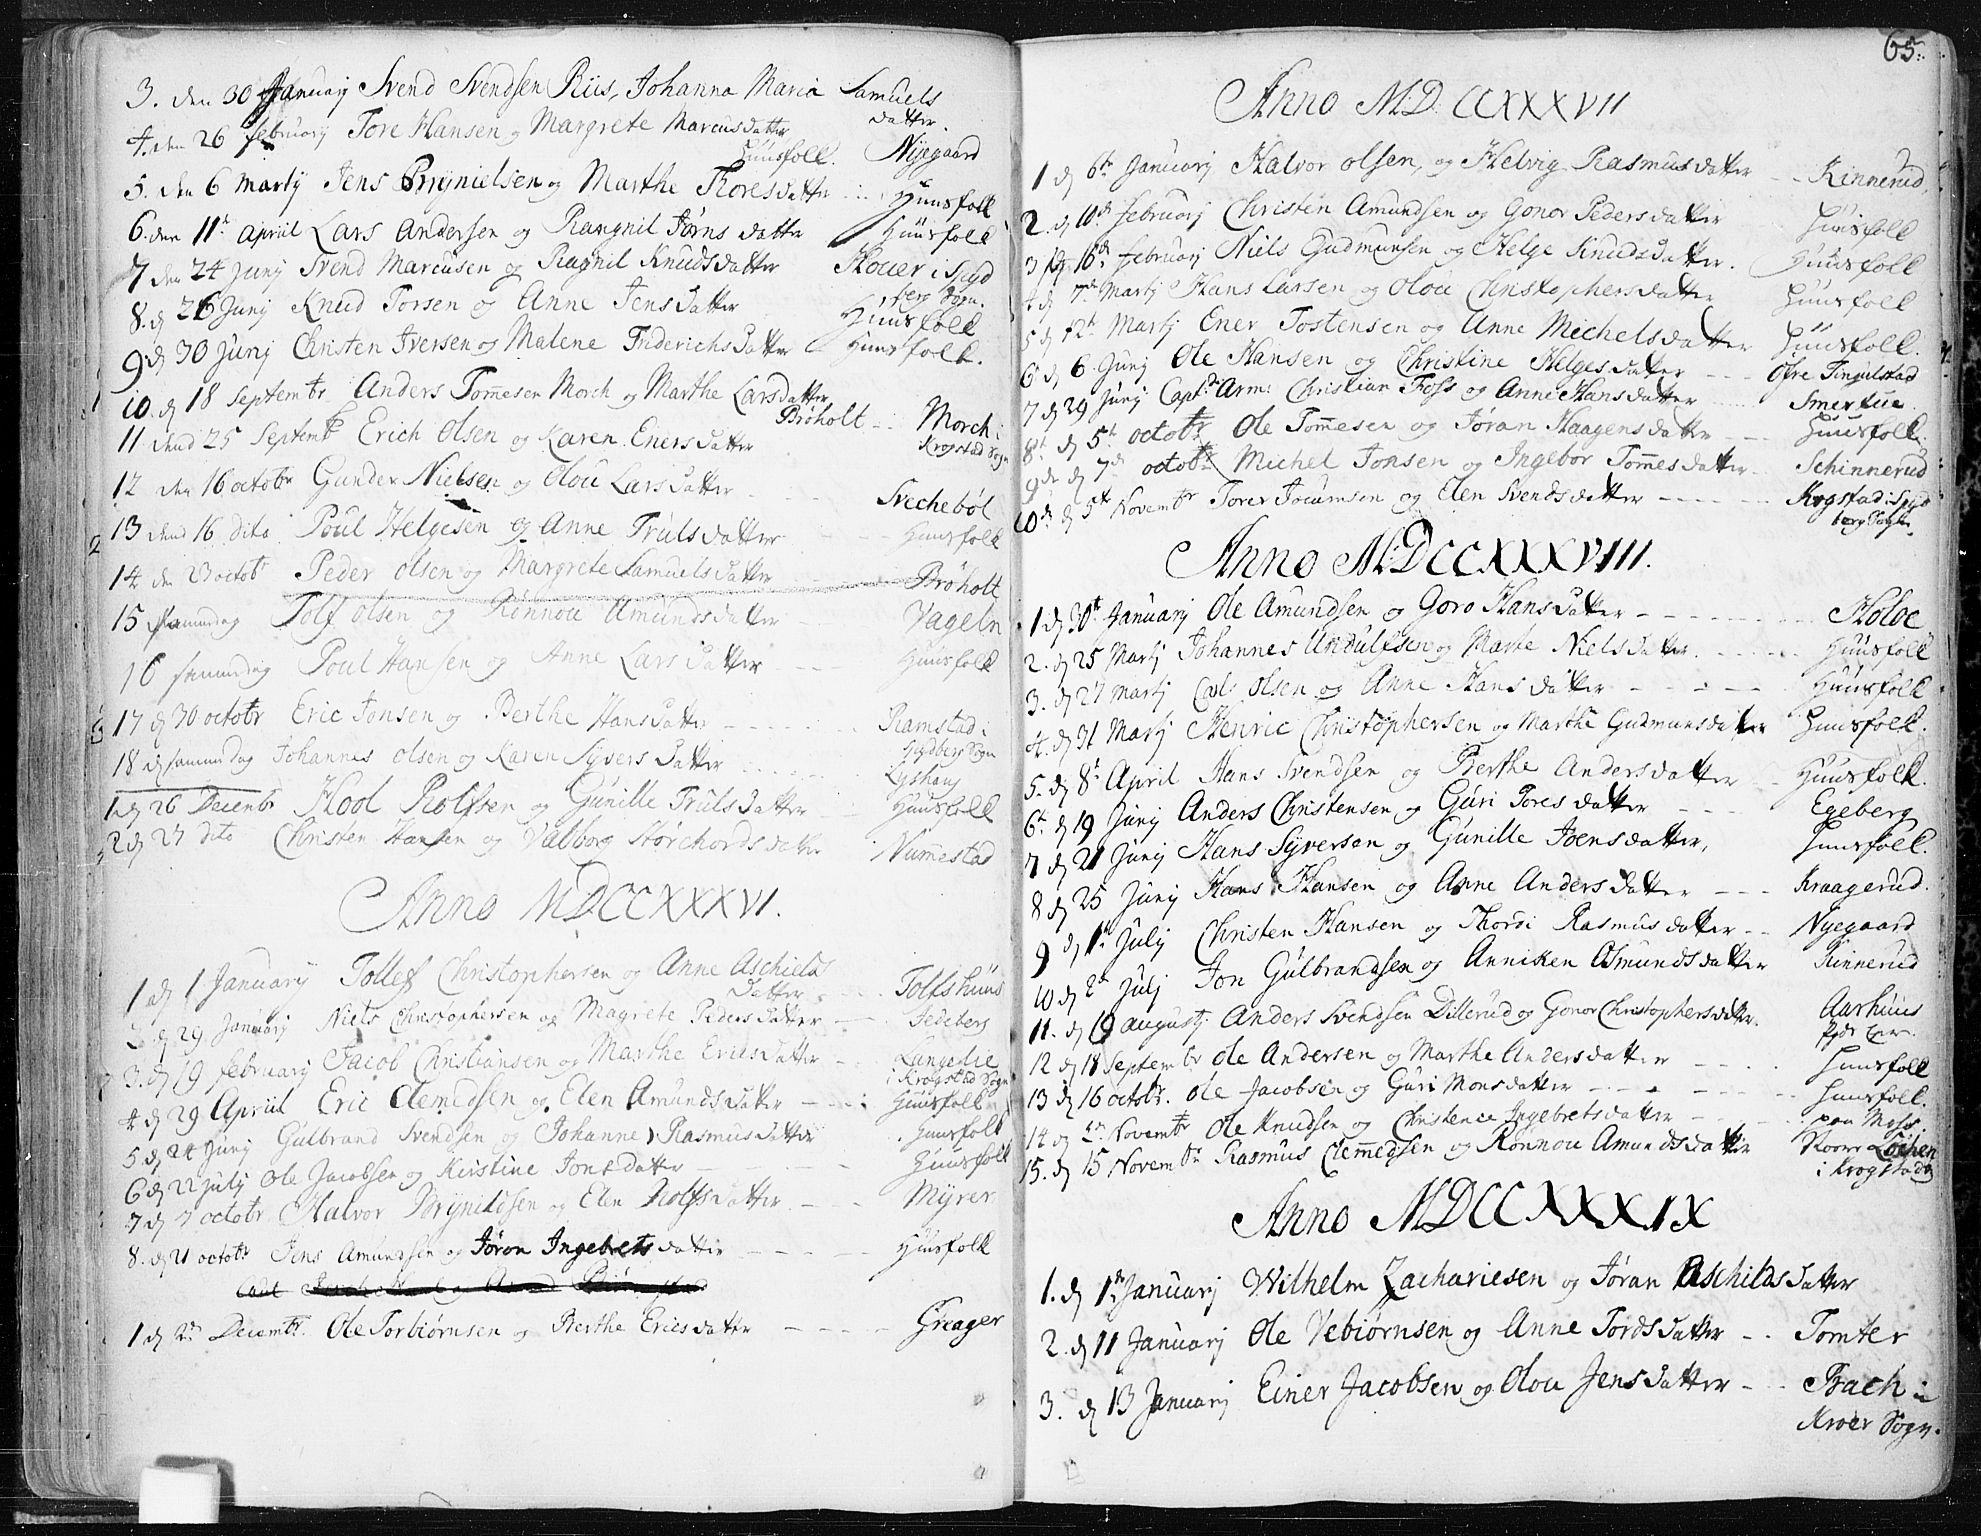 3. den 30 January Svend Svendsen Riis, Johanna Maria Samuels
datter.
4. den 26 february Tore Hansen og Margrete Marcusdatter
Huusfoll. Nyegaard
5. den 6 Martij Jens Brynielsen og Marthe Thoresdatter Huusfolk
6. den 11t april Lars Andersen og Rangnil Jørns datter Huusfolk
7 den 24 Junij Svend Marcusen og Ragnil Knudsdatter Skouer i Spyd
berg Sogn.
8. d 26 Junij Knud Torsen og Anne Jensdatter Huusfolk
9 d 30 Junij Christen Iversen og Malene Friderichsdatter Huusfolk.
10. d 18 Septembr Anders Tommesen Morch og Marthe Larsdatter
Brøholt -- Morch i
11 dend 25 Septembr Erich Olsen og Karen Enersdatter Krogstad Sogn
12 den 16 octobr Gunder Nielsen og Olou Larsdatter - - - Svechebøl
13 dend 16 dito Poul Helgesen og Anne Trulsdatter - - - Huusfolk
14 den 23 octobr Peder Olsen og Margrete Samuelsdatter - - Brøholt
15 samme dag Tolf Olsen og Rønnou Amundsdatter - Vageln
16 samme dag Poul Hansen og Anne Larsdatter - - - Huusfolk
17 d 30 octobr Eric Jonsen og Berthe Hansdatter - - - - Ramstad i
Spydberg Sogn
18 d samme dag Johannes Olsen og Karen Syversdatter Lyshaug
1 d 26 Decembr Hool Rolfsen og Gunille Trulsdatter - Huusfolk
2 d 27 dito Christen Hansen og Valborg Storchordsdatter Nummestad
Anno MDCCXXXVI.
1 d 1 Januarij Tollef Christophersen og Anne Aschields
datter - - - Tolfshuus
2 d 29 January Niels Christophersen og Magrete Pedersdatter - - Tedeberg
3. d 19 februarij Jacob Christiansen og Marthe Ericsdatter - Langelie
i Krogstad Sogn
4 d 29 Apriil Eric Clemedsen og Elen Amundsdatter - - Huusfolk
5 d 24 Junij Gulbrand Svendsen og Johanne Rasmusdatter . Huusfolk
6 d 22 Julij Ole Jacobsen og Kirstine Jonsdatter - - - Huusfolk
7 d 7 octobr. Halvor Brynildsen og Elen Rolfsdatter. - - Myrer
8. d 21 octobr Jens Amundsen og Jøron Ingebretsdatter - - - Huusfolk
1 d 2n Decembr. Ole Torbiørnsen og Berthe Ericsdatter - - - - Greager
65.
Anno MDCCXXXVII
1 d 6te Januarij Halvor Olsen, og Helvig Rasmusdatter - - Kinnerud
2. d 10de februarij Christen Amundsen og Gonor Pedersdatter Huusfolk
3 d 16de februarij Niels Gudmunsen og Helge Knudsdatter. Huusfolk
4 d 7de Martij Hans Larsen og Olou Christophersdatter Huusfolk
5 d 12te Martij Ener Tostensen og Anne Michelsdatter Huusfolk.
6 d 6. Junij Ole Hansen og Christine Helgesdatter - - - Øfre Tingulstad
7 d 29 Junij Capt. d'Arm: Christian Foss og Anne Hansdatter Smertue
8t d 5t octobr Ole Tommesen og Jøran Haagensdatter - - - Huusfolk.
9de d 7de octobr Michel Jonsen og Ingebor Tommesdatter - Schinnerud
10de d 5te Novembr Torer Jocumsen og Elen Svendsdatter - - - - - Krogstad i Spyd
berg Sogn.
Anno MDCCXXXVIII.
1 d 30t Januarij Ole Amundsen og Goro Hansdatter - - - - - - - Holbe
2. d 25 Martij Johannes Undulfsen og Marte Nielsdatter. - - - Huusfolk
3. d 27 Martij Carl Olsen og Anne Hansdatter - - - - Huusfolk
4. d 31 Martij Henric Christophersen og Marthe Gudmunsdatter Huusfolk.
5. d 8t April Hans Svendsen og Berthe Andersdatter - - Huusfolk.
6t. d 19 Junij Anders Christensen og Guri Toresdatter - - Egeberg
7 d 21 Junij Hans Syversen og Gunille Joensdatter, Huusfolk.
8 d 25 Junij Hans Hansen og Anne Andersdatter - - - Kraagerud.
9 d 1t Julij Christen Hansen og Thordi Rasmusdatter - - Nyegaard
10 d 2n Julij Jon Gulbrandsen og Anniken Osmundsdatter Kinnerud
11. d 19 augusti Anders Svendsen Dillerud og Gonor Christophersdatter. Aarhuus
12 d 18 Septembr Ole Andersen og Marthe Andersdatter - - - Huusfolk
13 d 16 octobr. Ole Jacobsen og Guri Monsdatter - - - - - - Huusfolk.
14 d Novembr Ole Knudsen og Christence Ingebretsdatter - - - paa Moss.
15. d 15 Novembr Rasmus Clemmedsen og Rønnou Amundsdatter Løchen
i Krogstads
Anno MDCCXXXIX
1. d 1t Januarij Wilhelm Zachariesen og Jøran Aschildsdatter
2. d 11 Januarij Ole Vebiørnsen og Anne Tordsdatter - - Tomter
3. d 13 Januarij Einer Jacobsen og Olou Jensdatter - - - Bach i
Kroer Sogn.